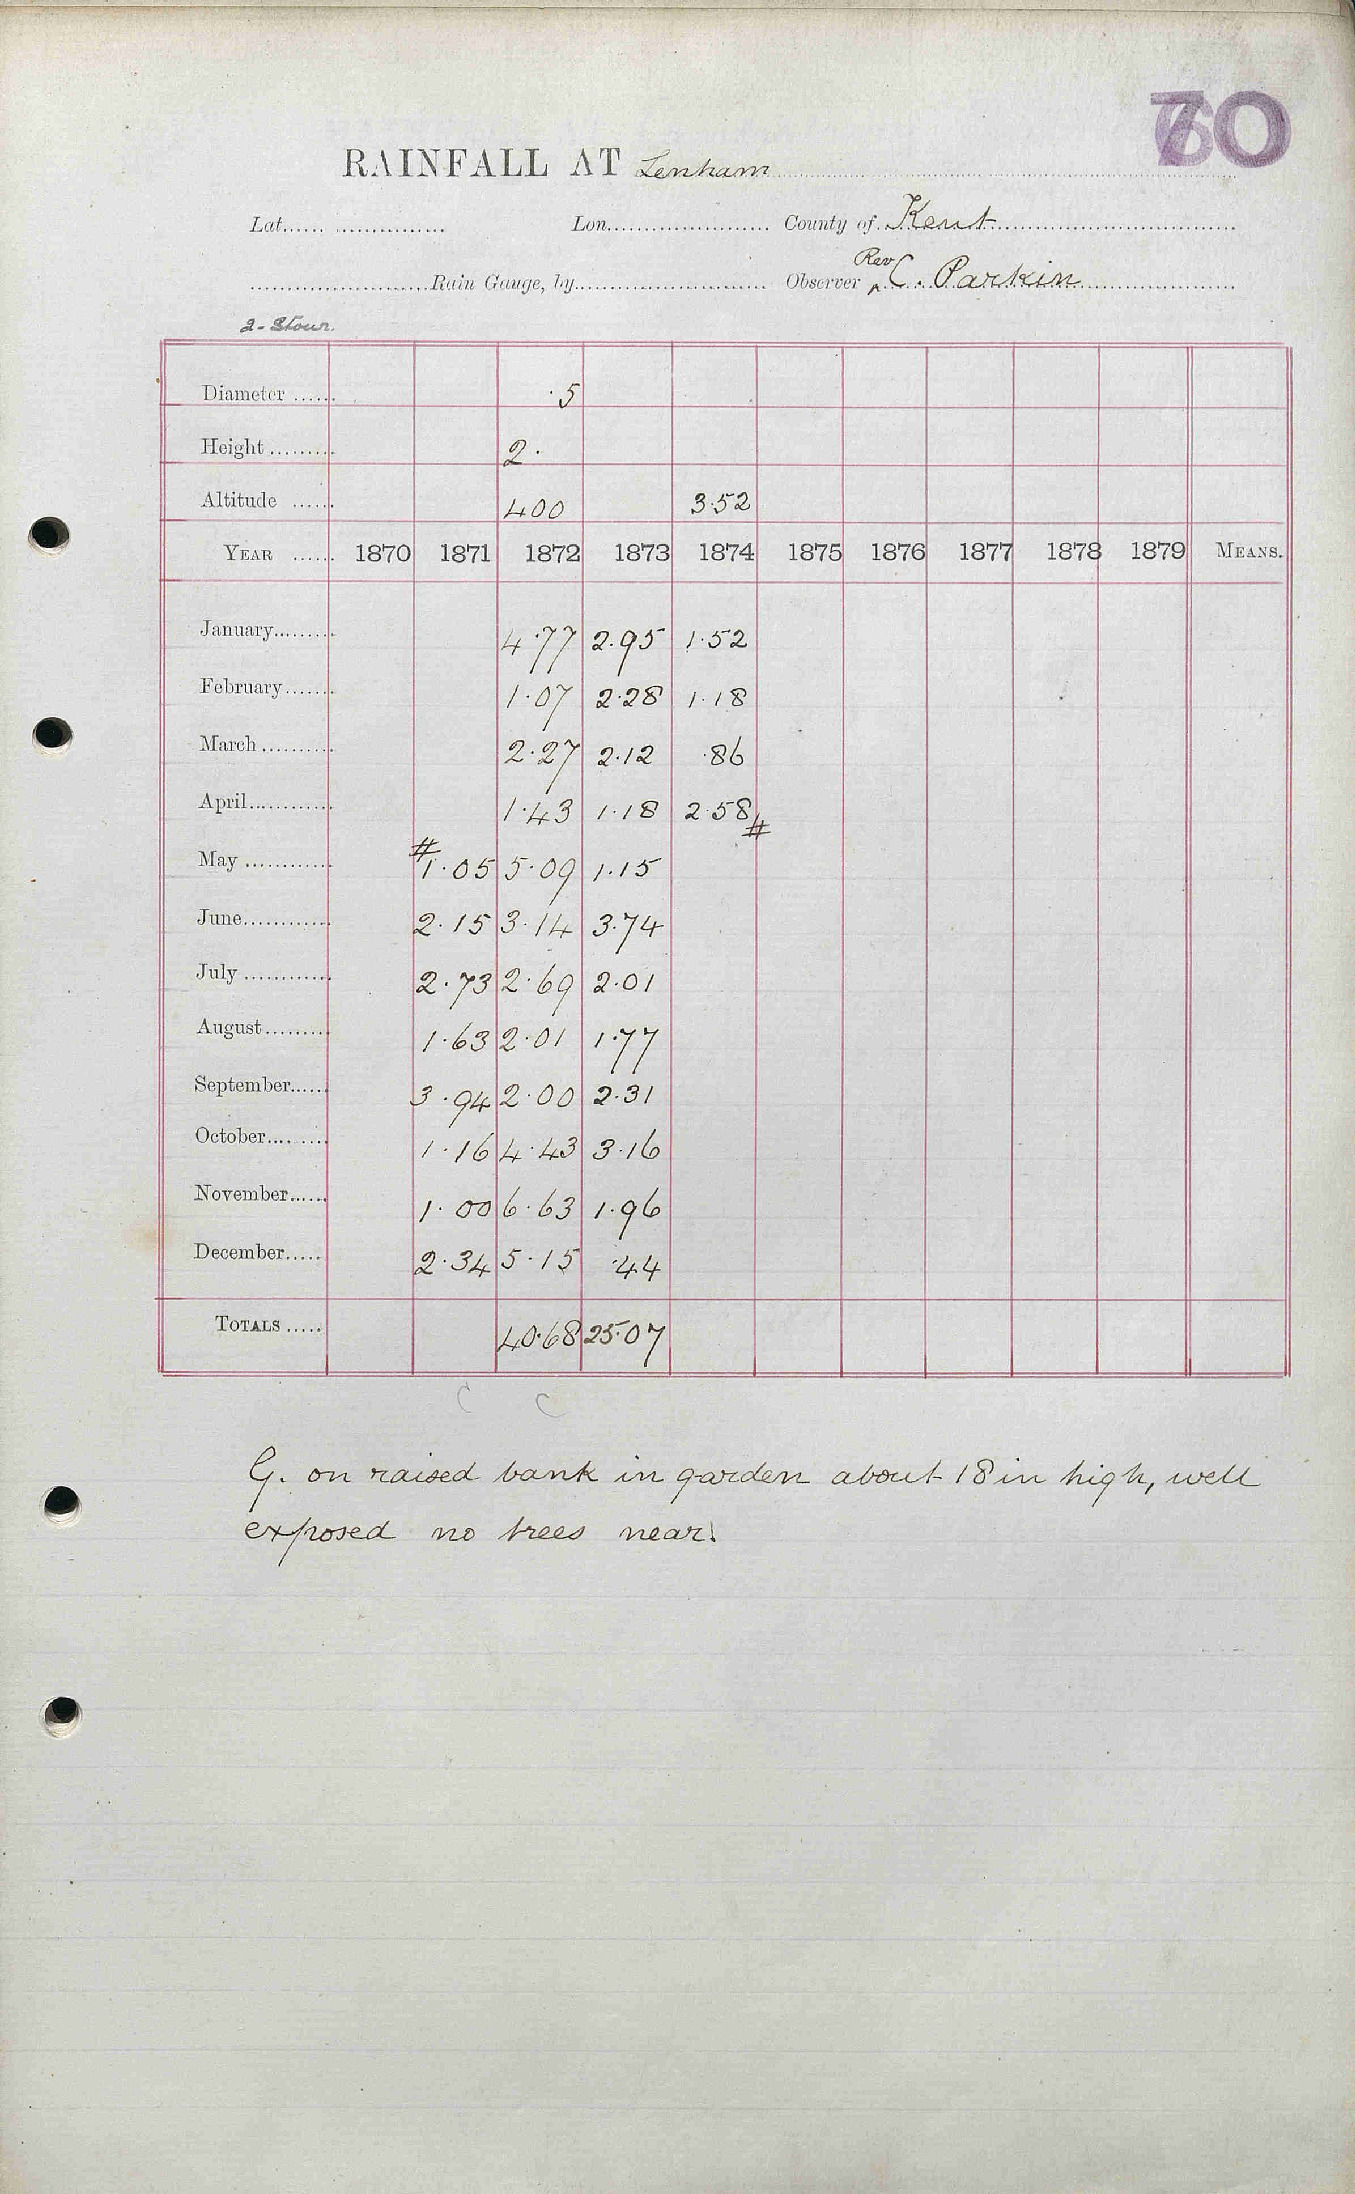 70
RAINFALL AT Lenham
Lat...... ................ Lon....................... County of Kent
Rev
..........................Rain Gauge, by........................... Observer ^ C. Parkin
2 - Stour.
Diameter ...... ·5
Height ......... 2·
Altitude ...... 400 3·52
YEAR ...... 1870 1871 1872 1873 1874 1875 1876 1877 1878 1879 MEANS.
January......... 4·77 2·95 1·52
February....... 1·07 2·28 1·18
March .......... 2·27 2·12 ·86
April............ 1·43 1·18 2·58 #
May ............ # 1·05 5·09 1·15
June............ 2·15 3·14 3·74
July ............ 2·73 2·69 2·01
August......... 1·63 2·01 1·77
September...... 3·94 2·00 2·31
October.... ..... 1·16 4·43 3·16
November...... 1·00 6·63 1·96
December..... 2·34 5·15 ·44
TOTALS ..... 40·68 25·07
C C
G. on raised bank in garden about 18 in high, well
exposed no trees near.